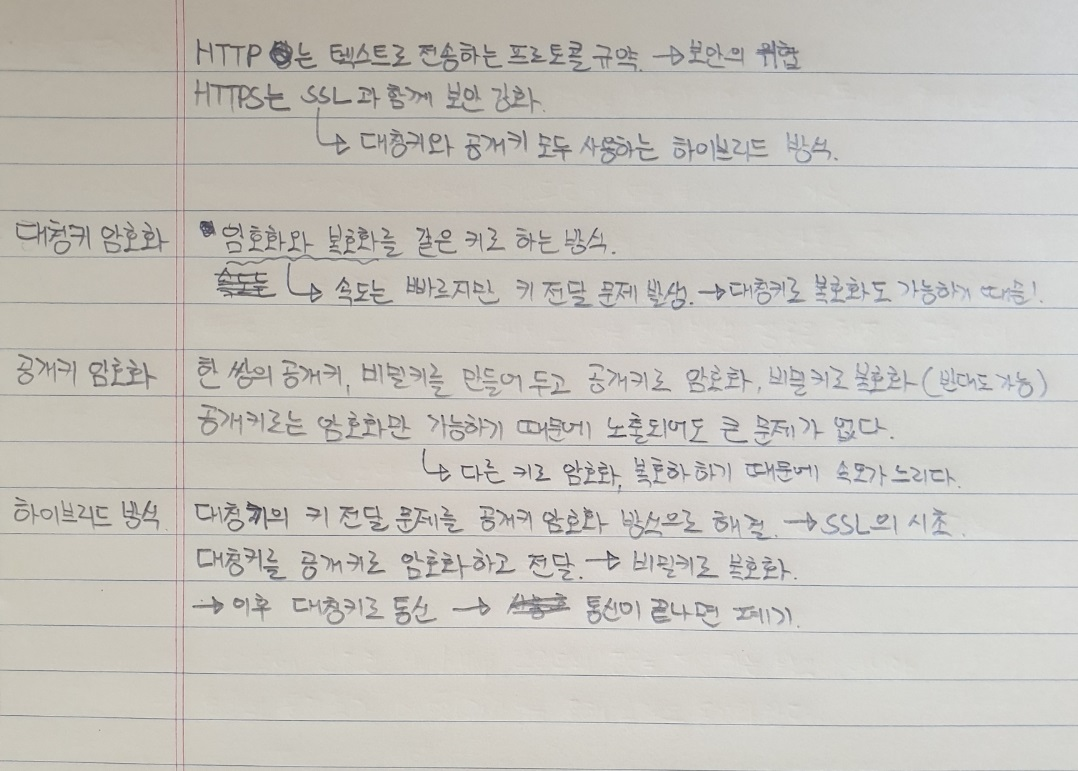 HTTP 는 텍스트로 전송하는 프로토콜 규약. → 보안의 위협
HTTPS는 SSL과 함께 보안 강화.
↳ 대칭키와 공개키 모두 사용하는 하이브리드 방식.
대칭키 암호화 암호화와 복호화를 같은 키로 하는 방식.
속도는 ↳ 속도는 빠르지만 키 전달 문제 발생. → 대칭키로 복호화도 가능하기 때문!
공개키 암호화 한 쌍의 공개키, 비밀키를 만들어 두고 공개키로 암호화, 비밀키로 복호화 (반대도 가능)
공개키로는 암호화만 가능하기 때문에 노출되어도 큰 문제가 없다.
↳ 다른 키로 암호화, 복호화 하기 때문에 속도가 느리다.
하이브리드 방식. 대칭키의 키 전달 문제를 공개키 암호화 방식으로 해결. → SSL의 시초.
대칭키를 공개키로 암호화하고 전달. → 비밀키로 복호화.
→ 이후 대칭키로 통신 → 통신이 끝나면 폐기.